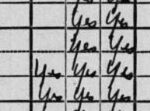 Yes Yes
Yes
Yes Yes
Yes Yes Yes
Yes Yes Yes